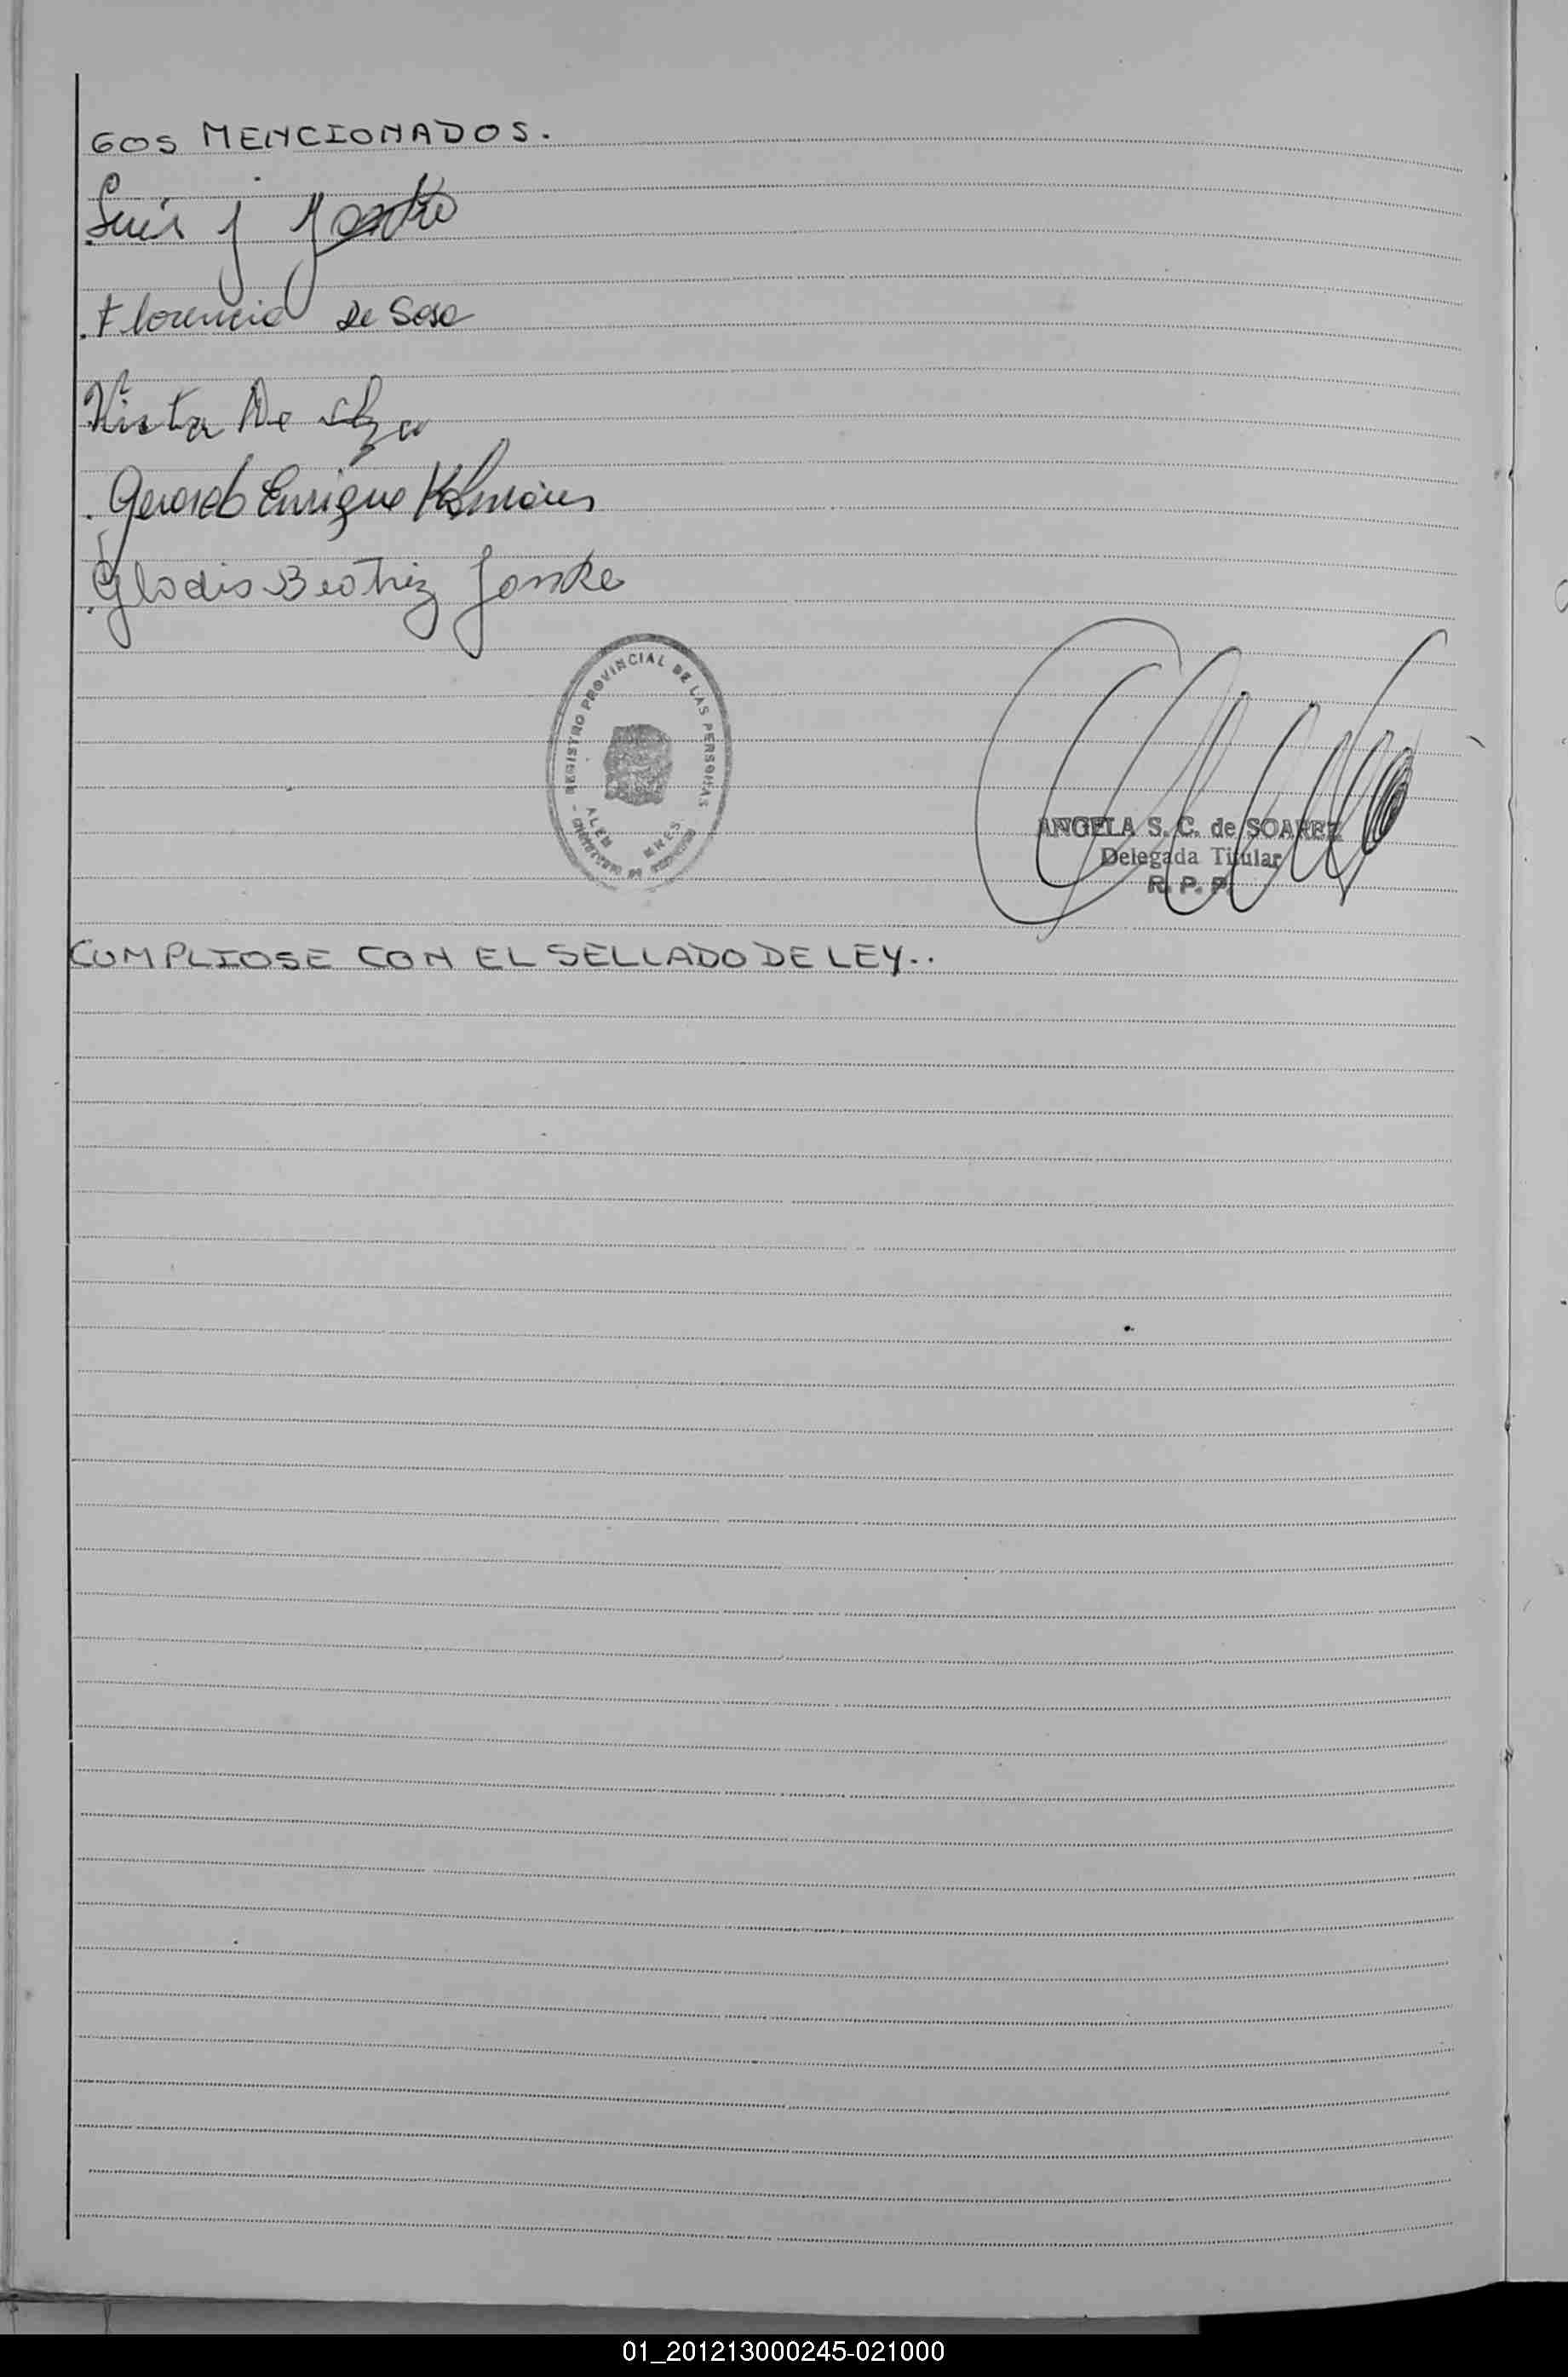 GOS MENCIONADOS.
Luis J
Florencia de Sosa
De
Gerardo Enrique
Gladis Beatriz Janke
REGISTRO PROVINCIAL DE LAS PERSONAS
ALEM
MNES.
ANGELA S. C. de SOAREZ
Delegada Titular
R. P. P.
CUMPLIOSE CON EL SELLADO DE LEY..
01_201213000245-021000